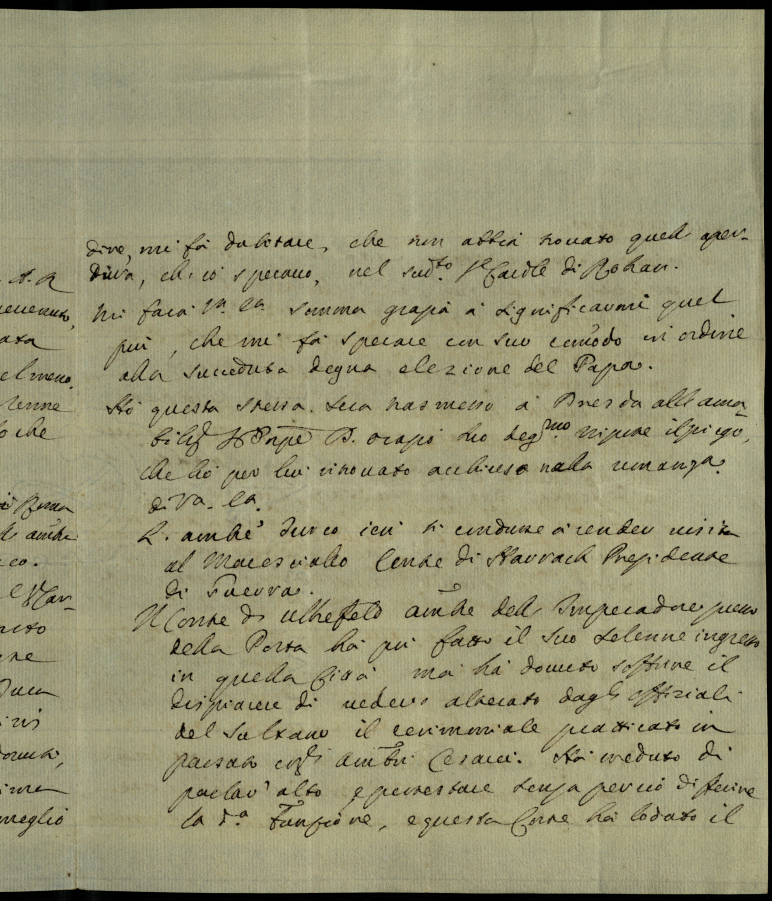 A. R
dire, mi fà dubitare, che non abbia trovato quell' aper-
tura, ch'io sperano, nel sud.to S.r Card.le di Rohan.
Mi farà V.ra Ecc.a somma grazia à significarmi quel
più, che mi fà sperare con suo comodo in ordine
alla succeduta degna elezione del Papa.
Hò questa stessa sera trasmesso à Dresda all'ama-
bilis.
che hò per lui ritrovato acchiuso nella umaniss.a
di V.ra Ecc.a
L'amb.e Turco ieri si condusse à render visita
al Maresciallo Conte di Harrach Presidente
di Guerra.
Il Conte di Uhlefeld amb.e dell' Imperadore presso
della Porta hà poi fatto il suo solenne ingresso
in quella Città mà hà dovuto soffrire il
dispiacere di vedersi alterato dagli offiziali
del Sultano il cerimoniale pratticato in
passato cogli amb.ri Cesarei. Hà creduto di
parlar' alto e protestare senza perciò differire
la d.a Funzione, e questa Corte hà lodato il
che
meglio